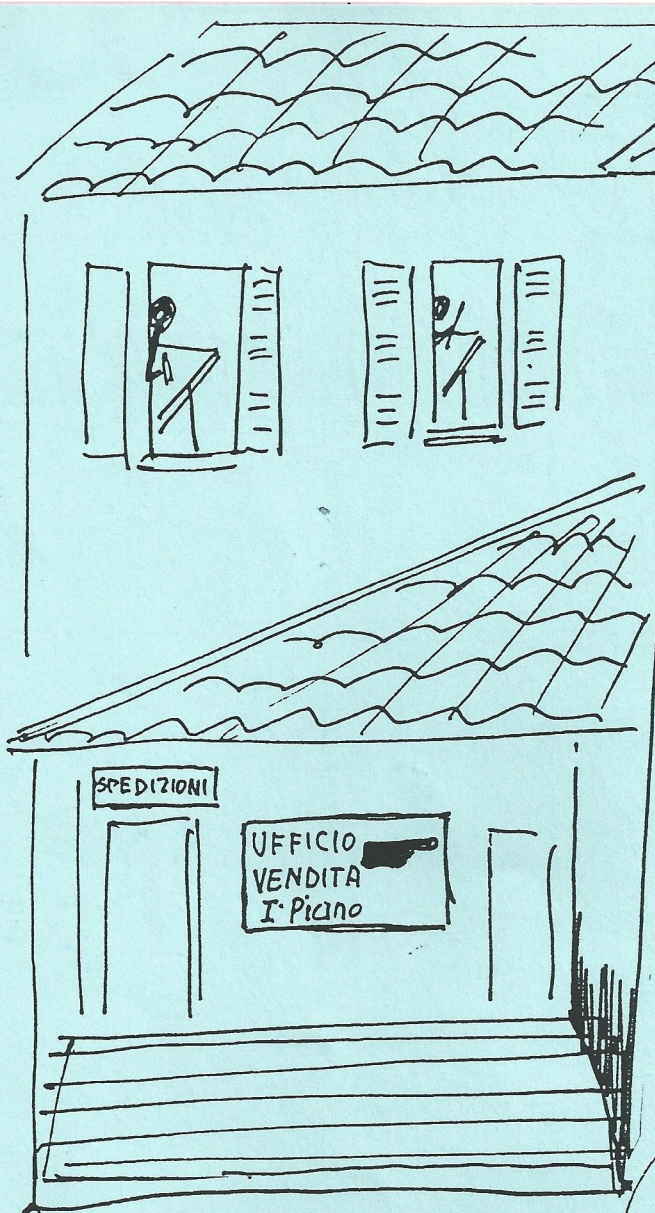 SPEDIZIONI
UFFICIO
VENDITA
I° Piano